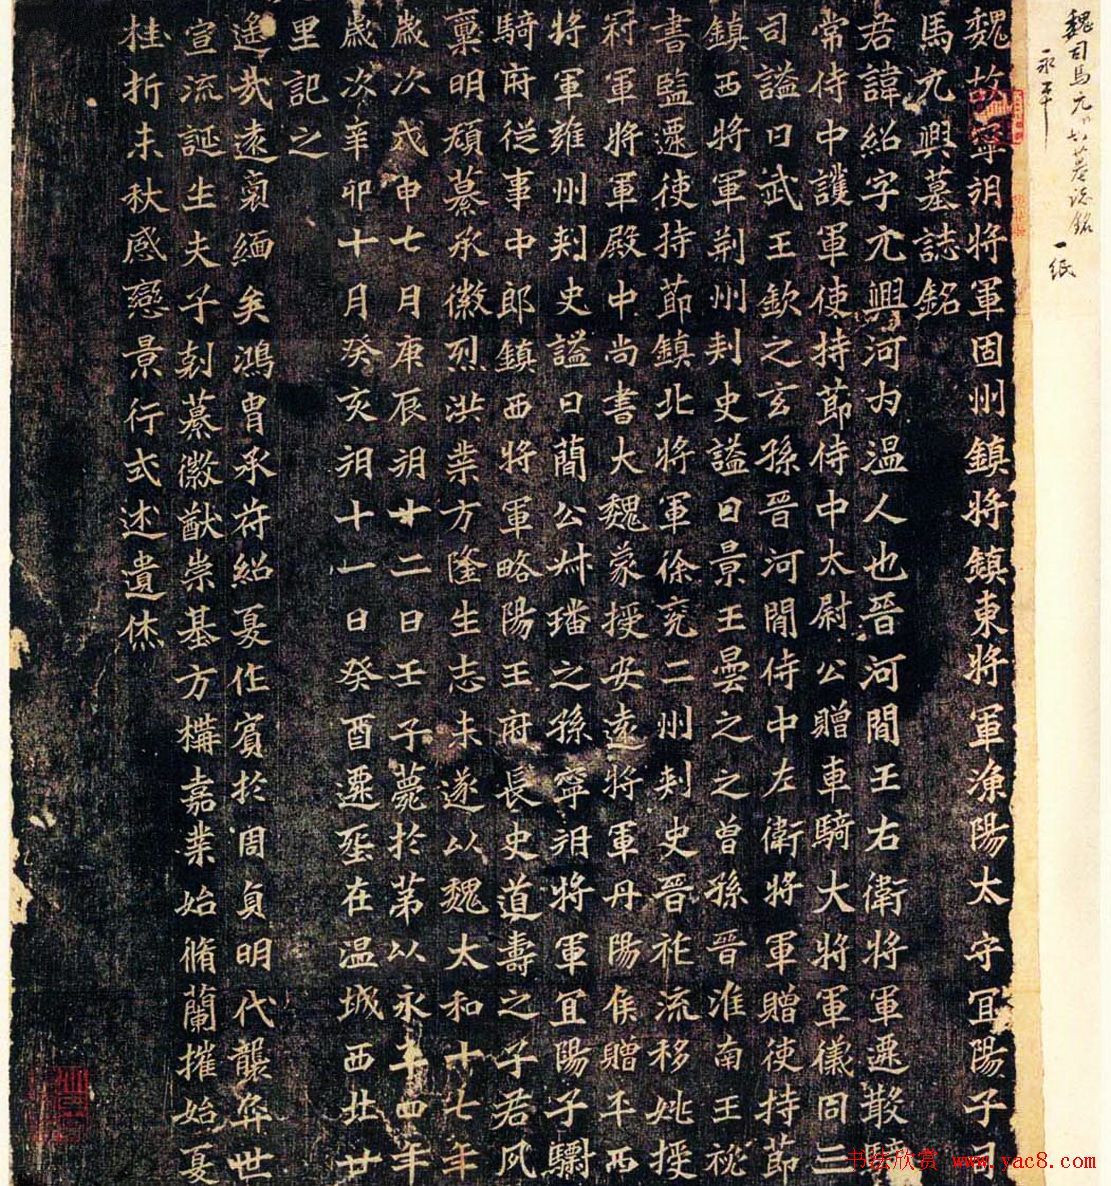 魏司馬元興墓誌銘 一紙
永平
魏故寧朔將軍固州鎮將鎮東將軍漁陽太守宜陽子司
馬元興墓誌銘
君諱紹字元興河內溫人也晉河間王右衛將軍遷散騎
常侍中護軍使持節侍中太尉公贈車騎大將軍儀同三
司謚曰武王欽之玄孫晉河間侍中左衛將軍贈使持節
鎮西將軍荊州刺史謚曰景王曇之之曾孫晉淮南王秘
書監遷使持節鎮北將軍徐兗二州刺史晉祚流移姚授
冠軍將軍殿中尚書大魏蒙授安遠將軍丹陽侯贈平西
將軍雍州刺史謚曰簡公叔璠之孫寧朔將軍宜陽子驃
騎府從事中郎鎮西將軍略陽王府長史道壽之子君夙
稟明頑纂承徽烈洪業方隆生志未遂以魏太和十七年
歲次戊申七月庚辰朔十二日壬子薨於第以永平四年
歲次辛卯十月癸亥朔十一日癸酉遷塋在溫城西北廿
里記之
遙哉遠裔緬矣鴻胄承符紹夏作賓於周貞明代襲弈世
宣流誕生夫子剋纂徽猷崇基方構嘉業始脩蘭摧始夏
桂折未秋感戀景行式述遺休
书法欣赏 www.yac8.com